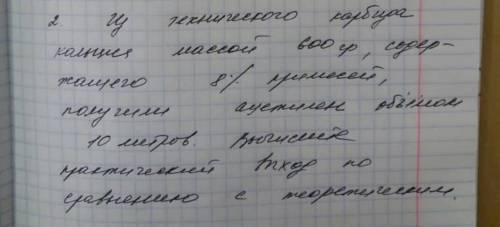 2. Из технического карбида
кальция массой 600 гр, содер-
жащего 8% примесей,
получили ацетилен объёмом
10 литров. Вычислите
практический выход по
сравнению с теоретическим.